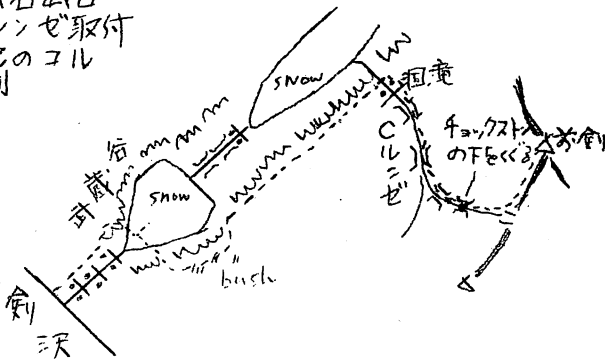 ンゼ取付
のコル
snow
snow
涸滝
Cルンゼ
チョックストン
の下をくぐる
前剣
武蔵谷
bush
剣沢